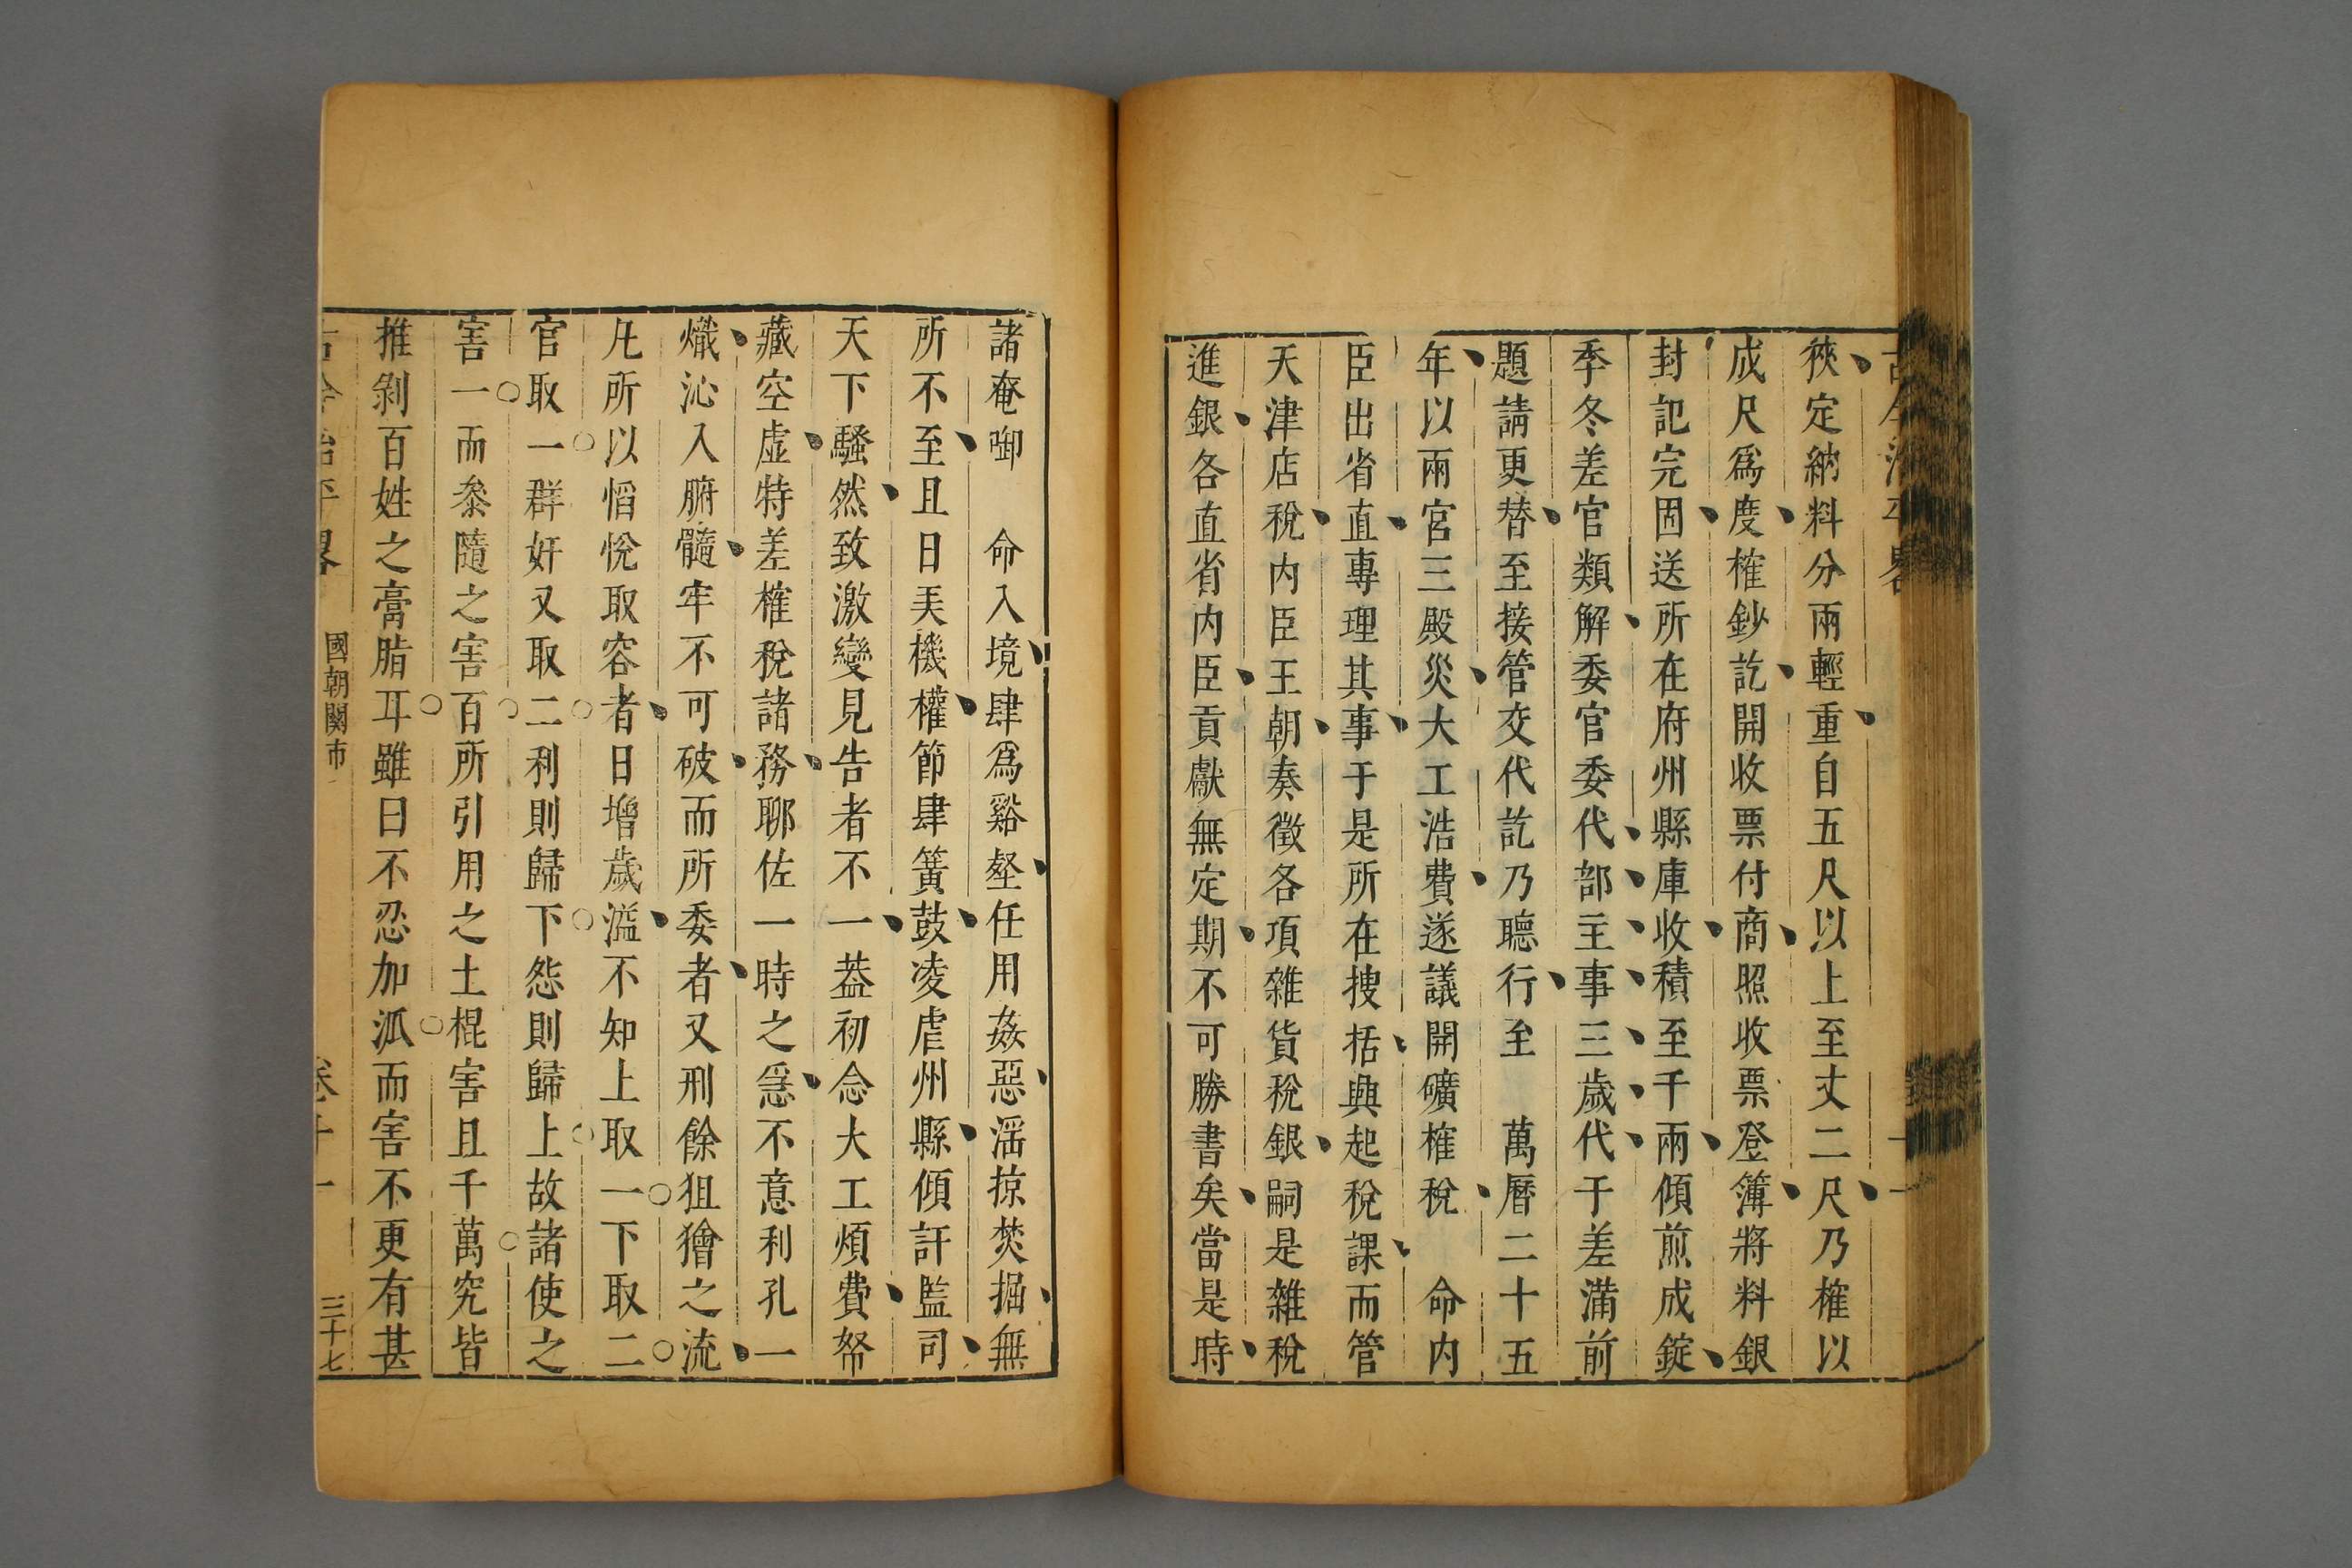 狹定納料分兩輕重自五尺以上至丈二尺乃榷以
成尺爲度榷鈔訖開收票付商照收票登簿將料銀
封記完固送所在府州縣庫收積至千兩傾煎成錠
季冬差官類解委官委代部主事三歲代于差滿前
題請更替至接管交代訖乃聽行至 萬曆二十五
年以兩宮三殿災大工浩費遂議開礦榷稅 命内
臣出省直專理其事于是所在搜括興起稅課而管
天津店稅内臣王朝奏徵各項雜貨稅銀嗣是雜稅
進銀各直省内臣貢獻無定期不可勝書矣當是時
諸奄啣 命入境肆爲谿壑任用姦惡滛掠焚掘無
所不至且日羙機權節肆簧鼓凌虐州縣傾訐監司
天下騷然致激變見告者不一葢初念大工煩費帑
藏空虛特差榷稅諸務聊佐一時之急不意利孔一
熾沁入腑髓牢不可破而所委者又刑餘狙獪之流
凡所以慆悅取容者日增歲溢不知上取一下取二
官取一群奸又取二利則歸下怨則歸上故諸使之
害一而叅隨之害百所引用之土棍害且千萬究皆
推剝百姓之膏脂耳雖曰不忍加泒而害不更有甚
古今治平畧 國朝關市 卷十一 三十七